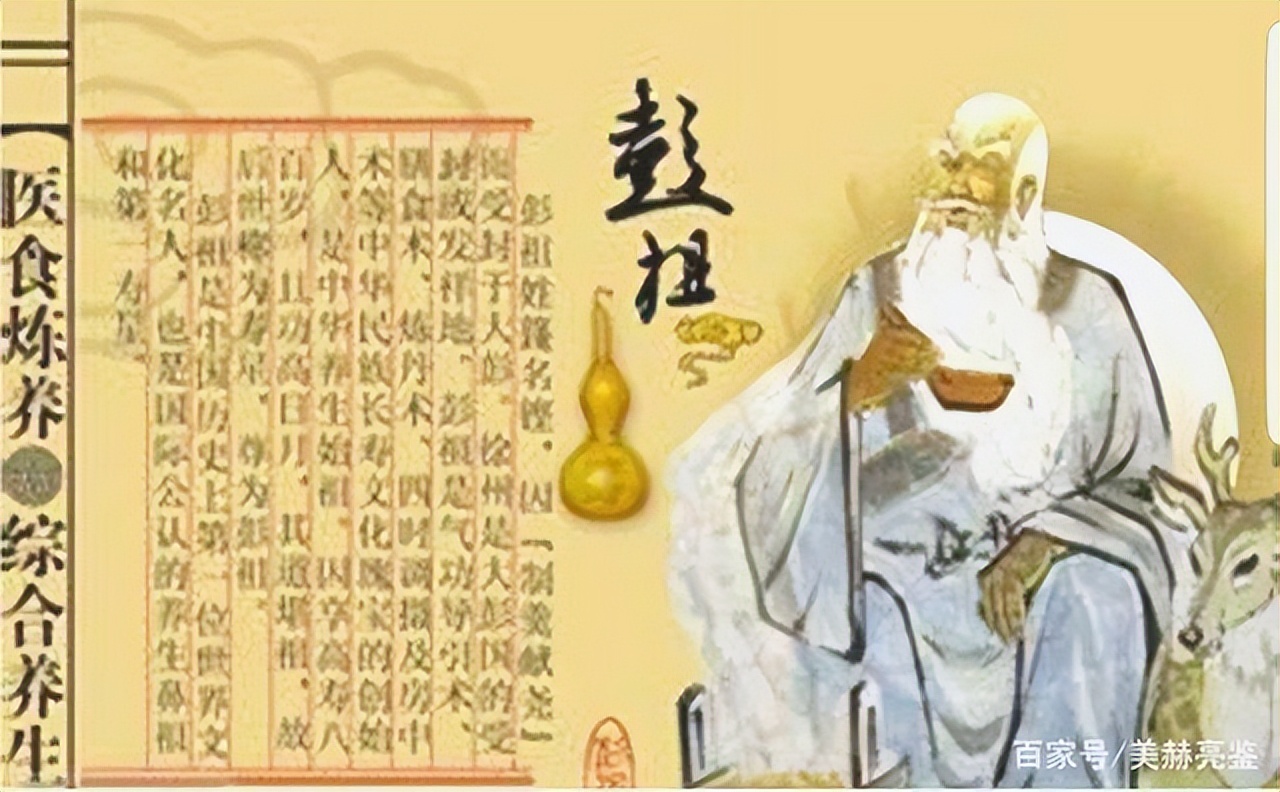 医食炼养●综合养生
彭祖
彭祖姓篯名铿。因『制羹献尧』
受封于大彭。徐州是大彭国的受
封或发祥地、彭祖是气功导引术、
膳食术、炼丹术、四时调摄及房中
术等中华民族长寿文化瑰宝的创始
人、是中华养生始祖、因享高寿八
百岁、且功高日月、其道堪祖、故
后世称为寿星、尊为彭祖、
彭祖是中国历史上第一位世界文
化名人、也是国际公认的养生鼻祖
和第一寿星、
百家号/美赫亮鉴